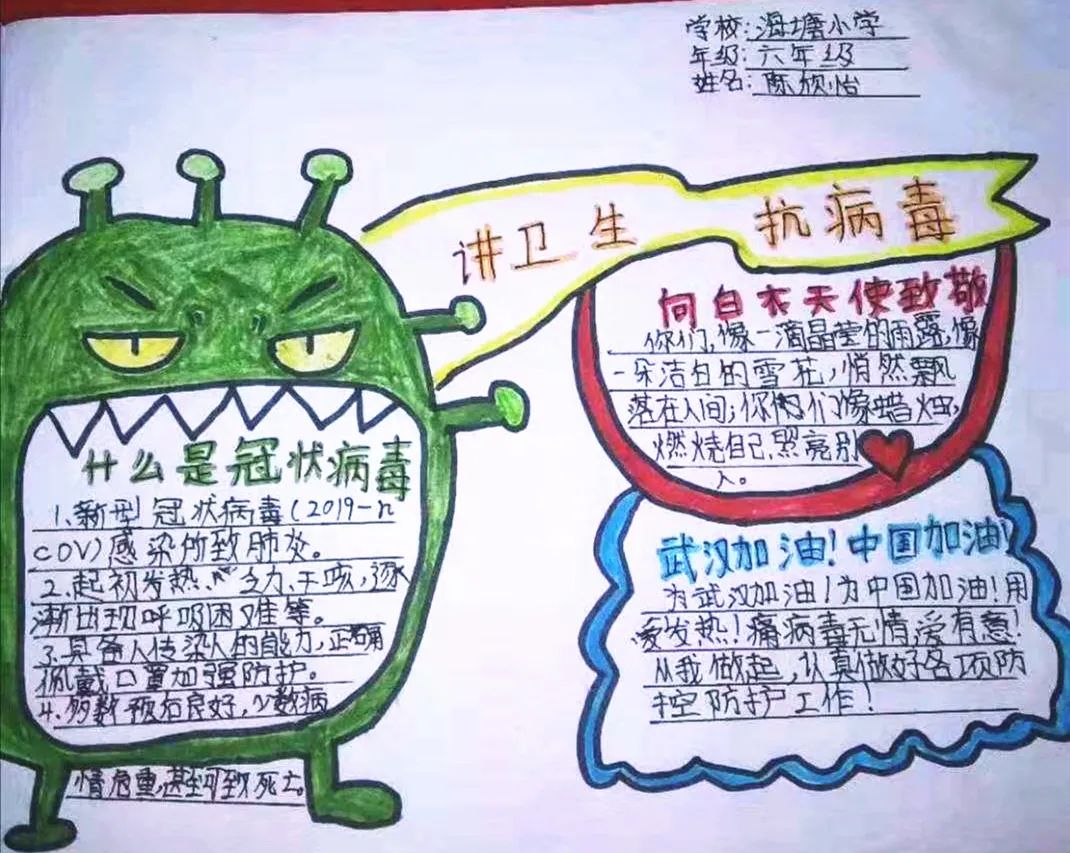 学校:海塘小学
年级:六年级
姓名:陈欣怡
讲卫生 抗病毒
什么是冠状病毒
1、新型冠状病毒(2019-n
COV)感染所致肺炎。
2、起初发热、乏力、干咳,逐
渐出现呼吸困难等。
3、具备人传染人的能力,正确
佩戴口罩加强防护。
4、多数预后良好,少数病
情危重,甚至可致死亡。
向白衣天使致敬
你们,像一滴晶莹的雨露,像
一朵洁白的雪花,悄然飘
落在人间;你们像蜡烛,
燃烧自己,照亮别
人。
武汉加油!中国加油!
为武汉加油!为中国加油!用
爱发热!痛病毒无情爱有意!
从我做起,认真做好各项防
控防护工作!